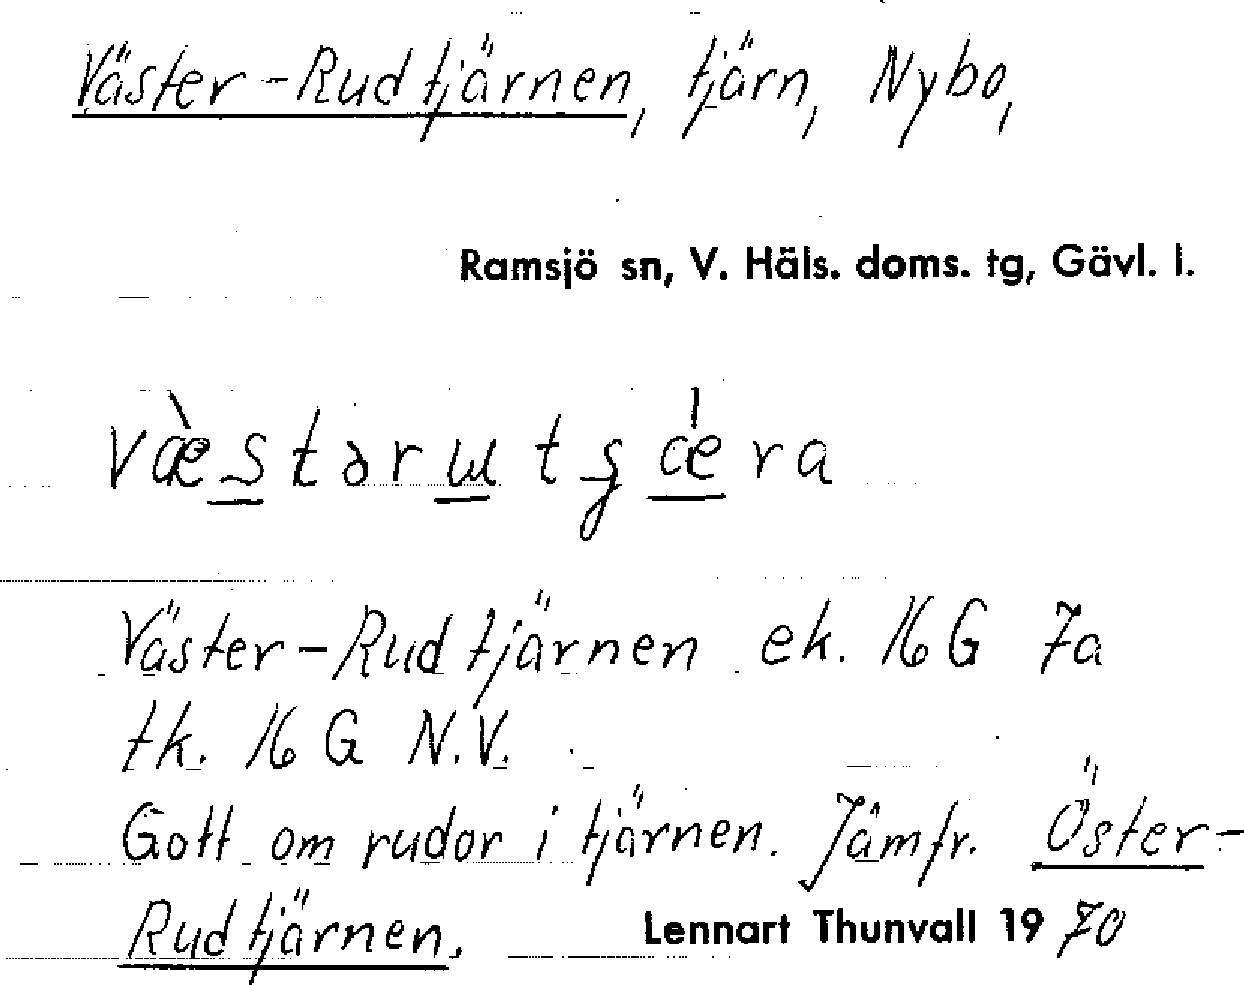 Väster-Rudtjärnen, tjärn, Nybo,
Ramsjö sn, V. Häls. doms. tg, Gävl. l.
Väster-Rudtjärnen ek. 16 G 7a
tk. 16 G N.V.
Gott om rudor i tjärnen. Jämfr. Öster-
Rudtjärnen. Lennart Thunvall 1970